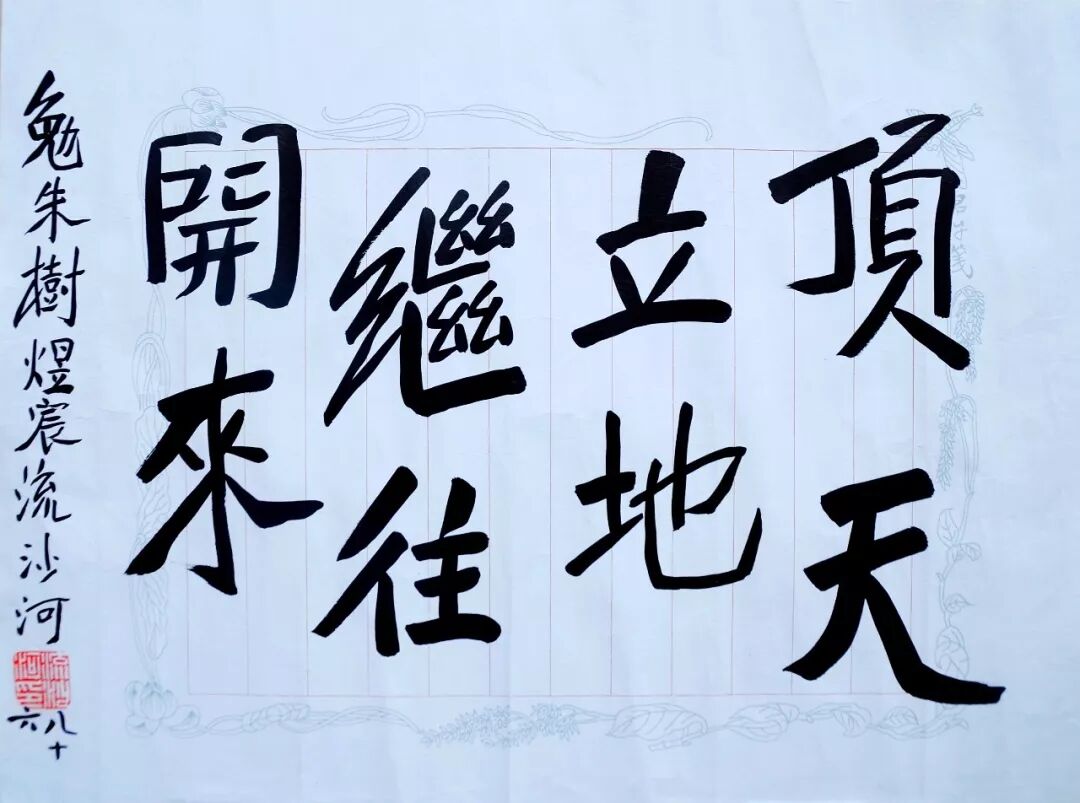 頂天
立地
繼往
開來
勉朱樹煜宸流沙河
八十六